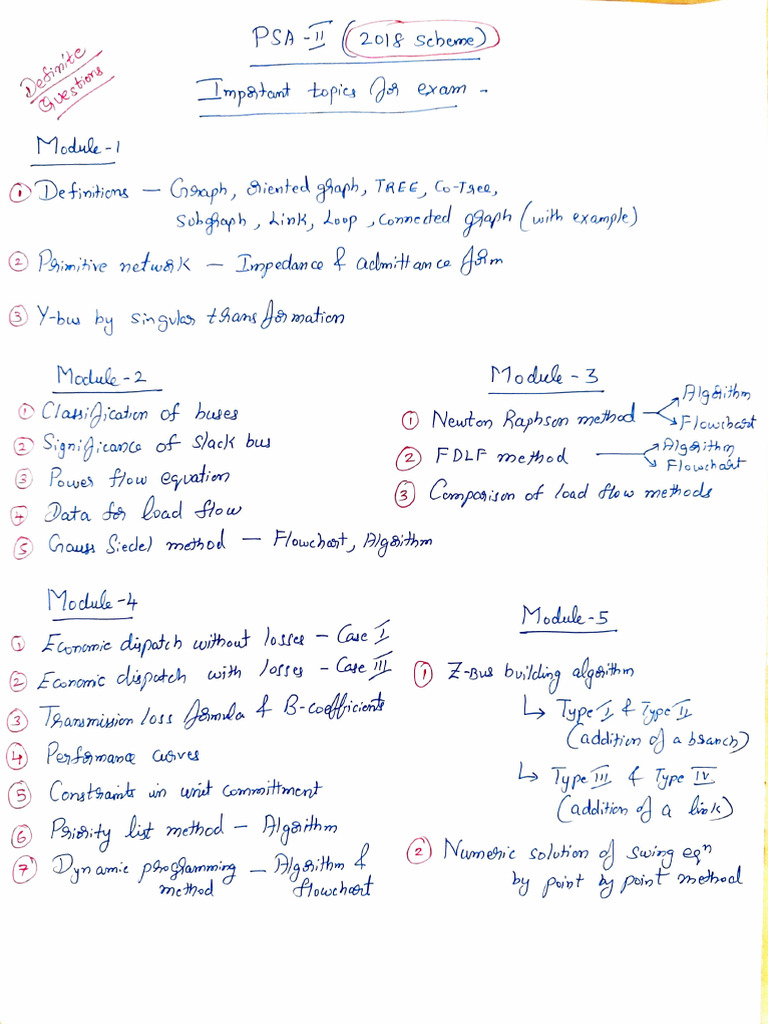 PSA-II (2018 scheme)
Definite
Questions
Important topics for exam -
Module-1
① Definitions — Graph, oriented graph, TREE, Co-Tree,
subgraph, Link, Loop, Connected graph (with example)
② Primitive network — Impedance & admittance form
③ Y-bus by singular transformation
Module-2
① Classification of buses
② Significance of slack bus
③ Power flow equation
④ Data for load flow
⑤ Gauss Siedel method — Flowchart, Algorithm
Module - 3
① Newton Raphson method → Algorithm
→ Flowchart
② FDLF method → Algorithm
→ Flowchart
③ Comparison of load flow methods
Module-4
① Economic dispatch without losses - Case I
② Economic dispatch with losses - Case III
③ Transmission loss formula & B-coefficients
④ Performance curves
⑤ Constraints in unit committment
⑥ Priority list method - Algorithm
⑦ Dynamic programming — Algorithm &
method flowchart
Module-5
① Z-Bus building algorithm
↳ Type I & Type II
(addition of a branch)
↳ Type III & Type IV
(addition of a link)
② Numeric solution of swing eqⁿ
by point by point method